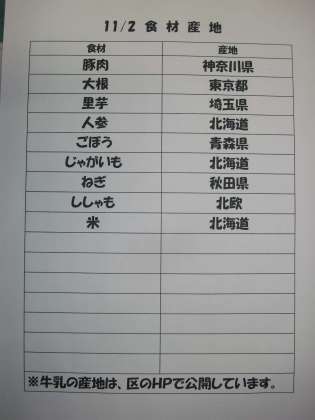 11/2 食材産地
食材 産地
豚肉 神奈川県
大根 東京都
里芋 埼玉県
人参 北海道
ごぼう 青森県
じゃがいも 北海道
ねぎ 秋田県
ししゃも 北欧
米 北海道
※牛乳の産地は、区のHPで公開しています。